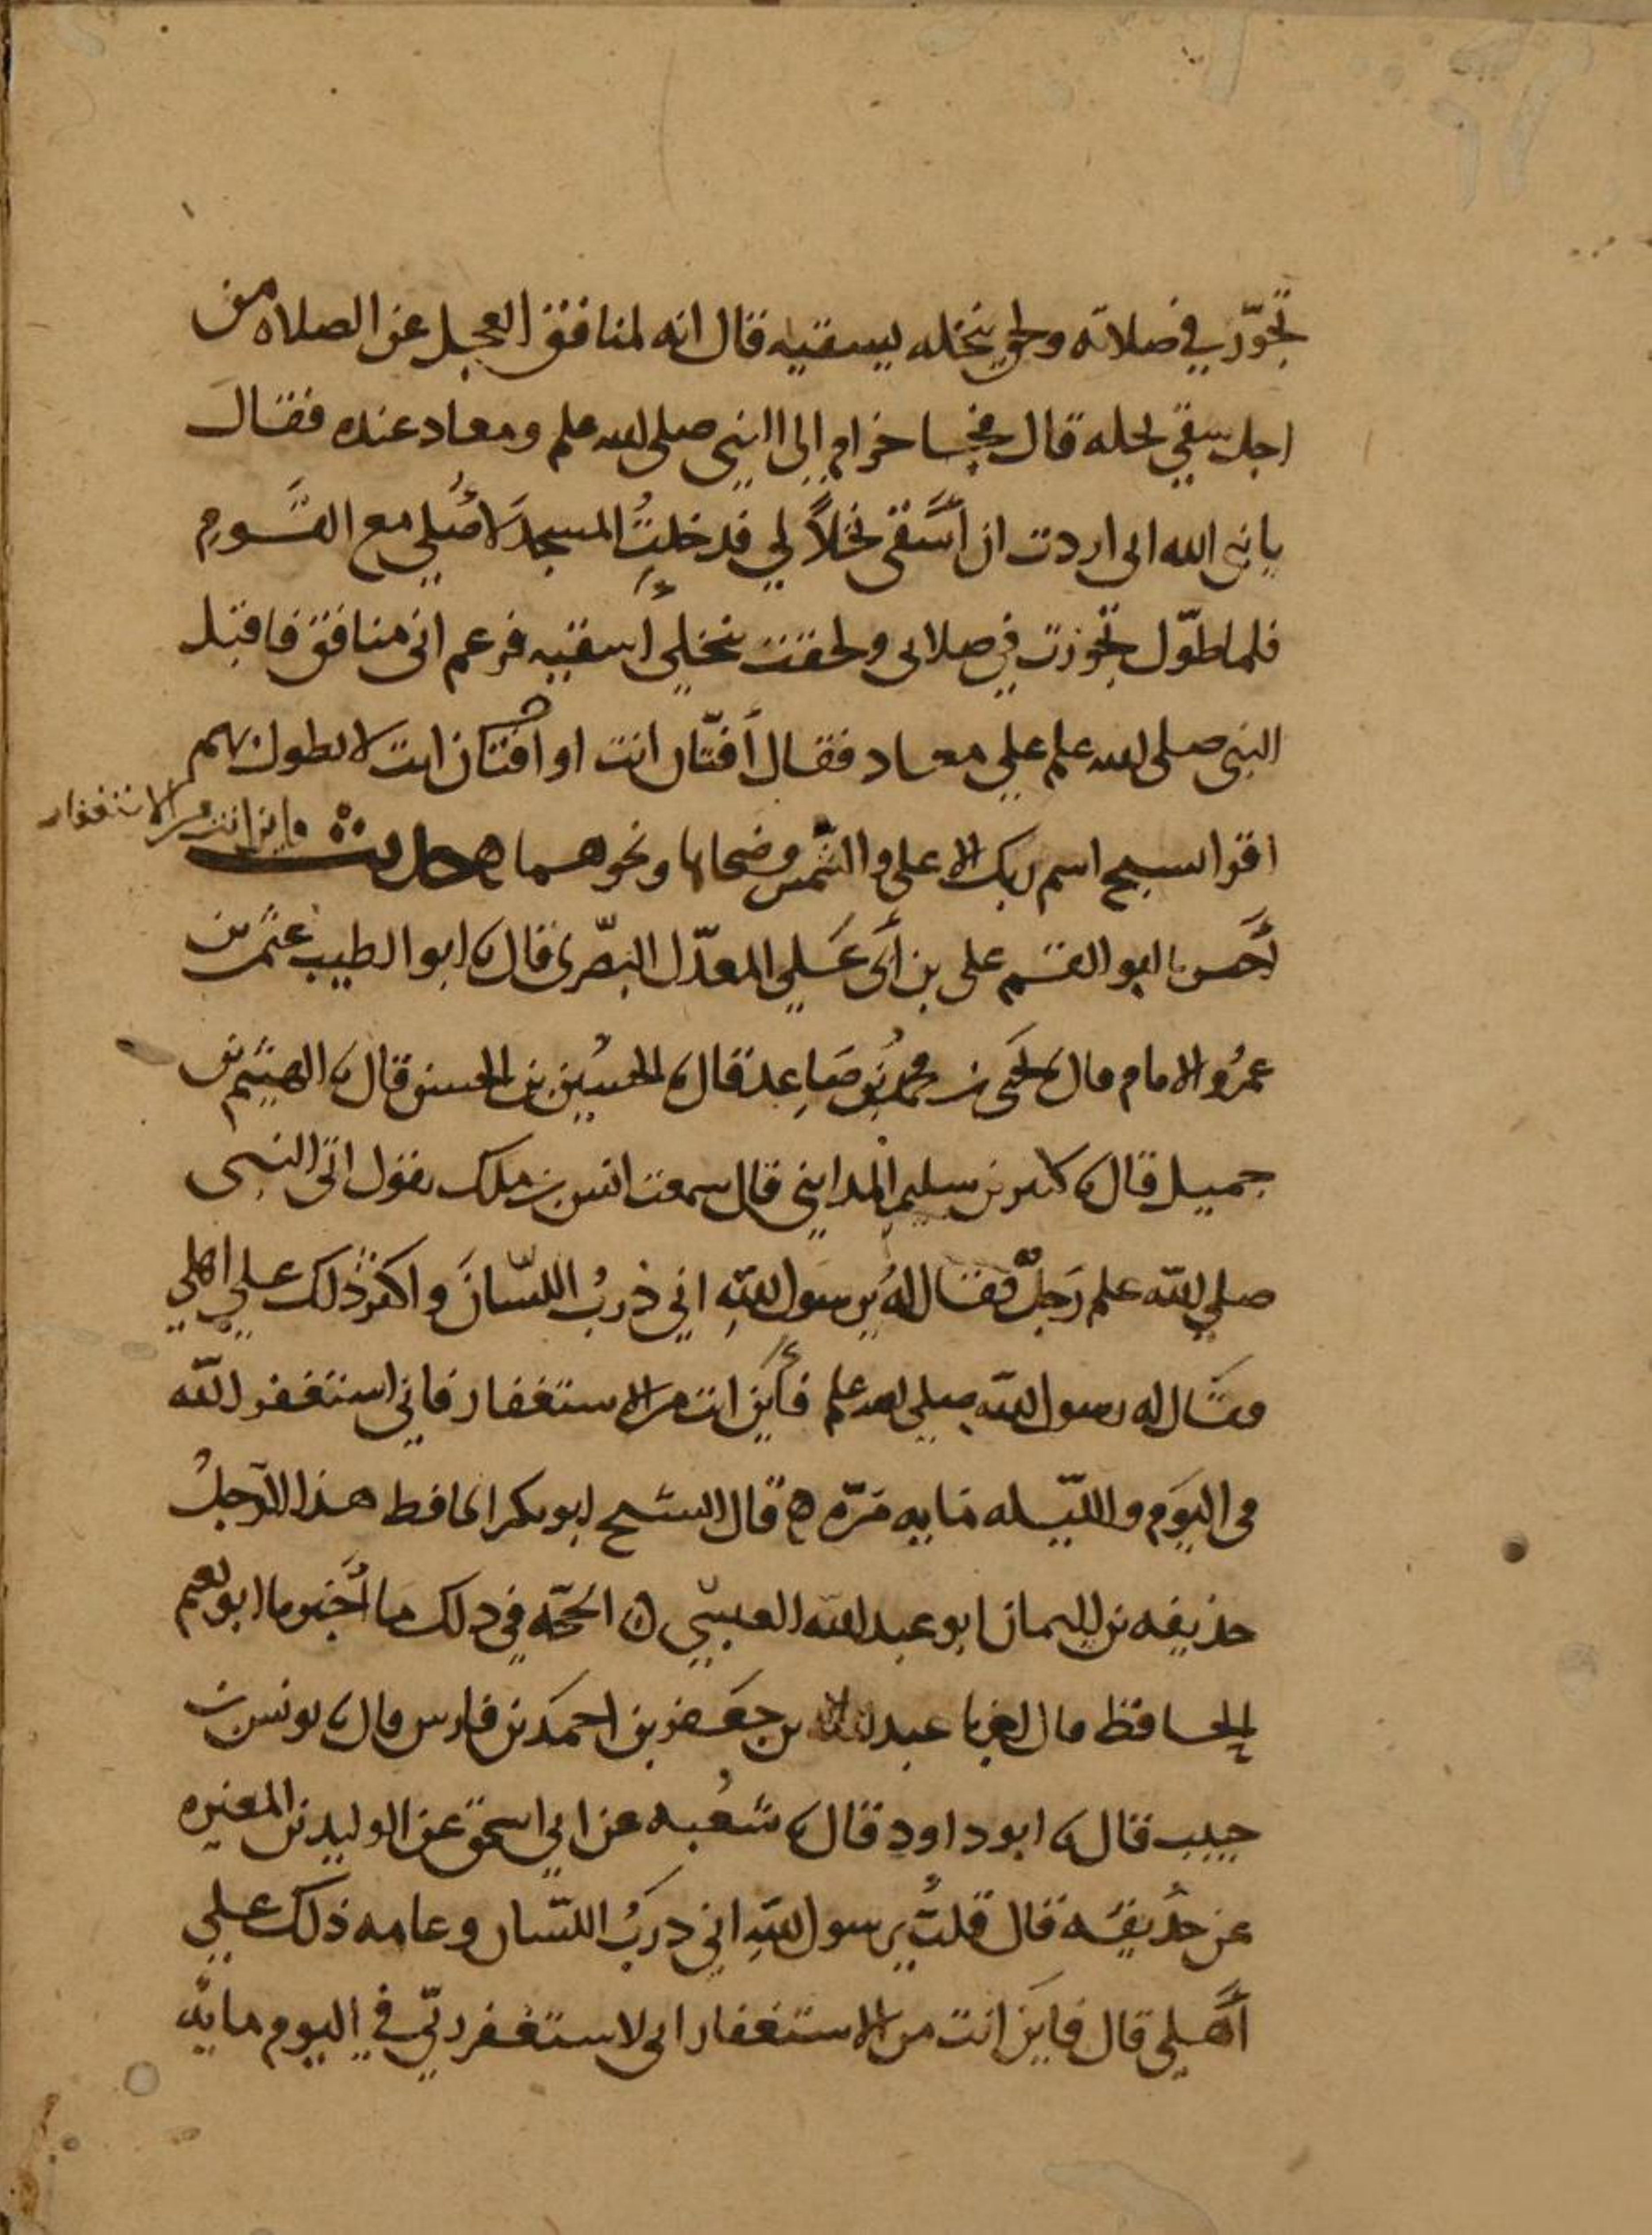 تجوّز في صلاته ولحق بنخله يسقيه قال انه لمنافق العجل عن الصلاه من
اجل سقي نخله قال فجا حرام إلى النبي صلى الله علم ومعاد عنده فقال
يا نبي الله اني اردت ان أسقى نخلاً لي فدخلتُ المسجدَ لاصُلي مع القَومِ
فلما طوّل تجوزت في صلاتى ولحقت بنخلي أسقيه فزعم انى منافق فاقبل
النبي صلى الله علم على معاد فقال أفتّان انت او أفتان انت لا تطول بهم
اقرا سبح اسم ربك الاعلى والشّمس وضحاها ونحوهما ه حديث
واين انت من الاستغفار
أَخبرنا ابو القسم على بن أبى عَلي المعدّل البصّرى قال نا ابو الطيب عثمن بن
عمرُو الامام قال نا يحَيى بن محمد بنُ صَاعِد قال نا الحسُين بن الحسن قال نا الهيثم بن
جميل قال نا كثير بن سليم المدايني قال سمعت انس بن ملك يقول اتى النبى
صلي الله علم رَجلٌ فقال لهُ يرسول اللهِ اني ذربُ اللسّانَ واكثر ذلك علي اهلي
فقَال له رسول الله صلي الله علم فأَين انت من الاستغفار فاني استغفر الله
في اليَوم والليّله مَايه مَرّه ه قال الشيخ ابو بكر الحافظ هذا الرّجلُ
حذيفه بن اليمان ابو عبد الله العبسي ه الحجّه في ذلك ما أَخبرنا ابو نعيم
الحافظ قال اخبرنا عبد الله بن جَعفر بن احمَد بن فارس قال نا يونس بن
حبيب قال نا ابو داود قال نا شعُبه عن ابي اسحق عن الوليد بن المغيره
عن حذُيفَه قال قلتُ يرسول اللهِ اني ذربُ اللسّان وعامه ذلك علي
أَهلي قال فاينَ انت من الاستغفار انى لاستغفر ربّي في اليوم مايه